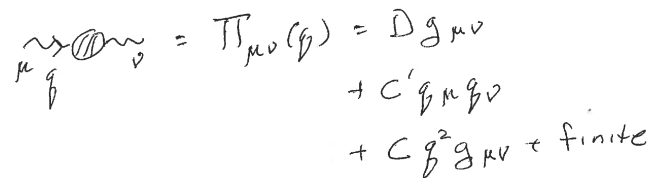 μ q ν = Π_{μν}(q) = D g_{μν}
+ C' q_μ q_ν
+ C q² g_{μν} + finite